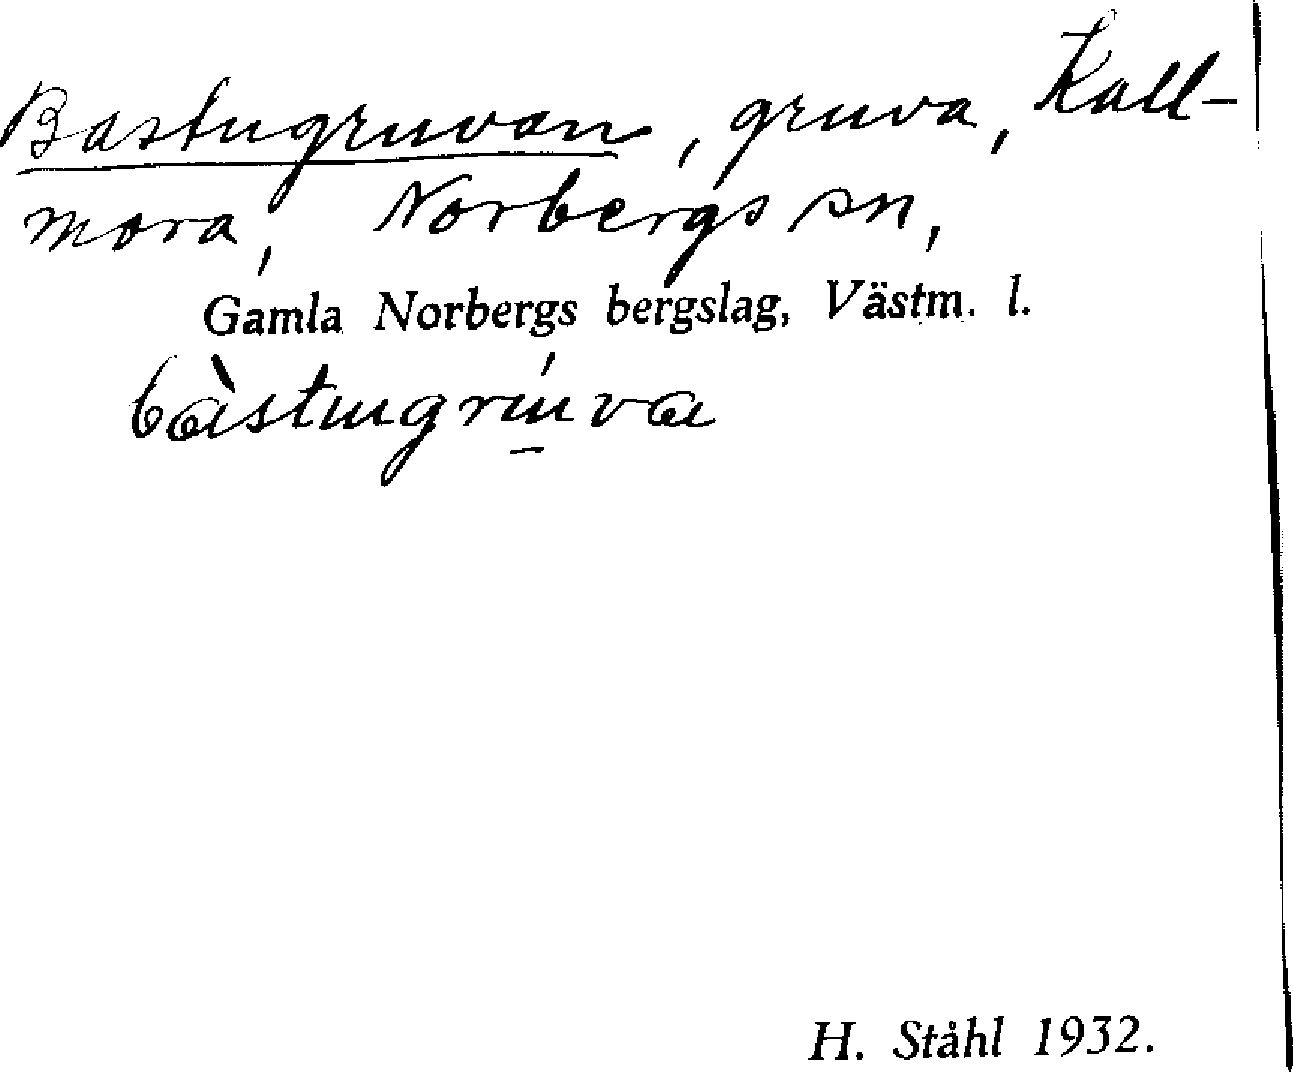 Bastugruvan, gruva, Kall-
mora, Norbergs sn,
Gamla Norbergs bergslag, Västm. l.
bàstugrúva
H. Ståhl 1932.